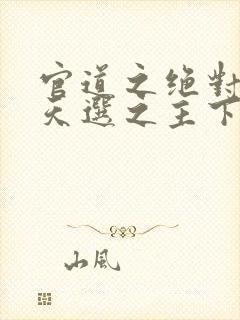 官道之绝對
天選之主下
山風